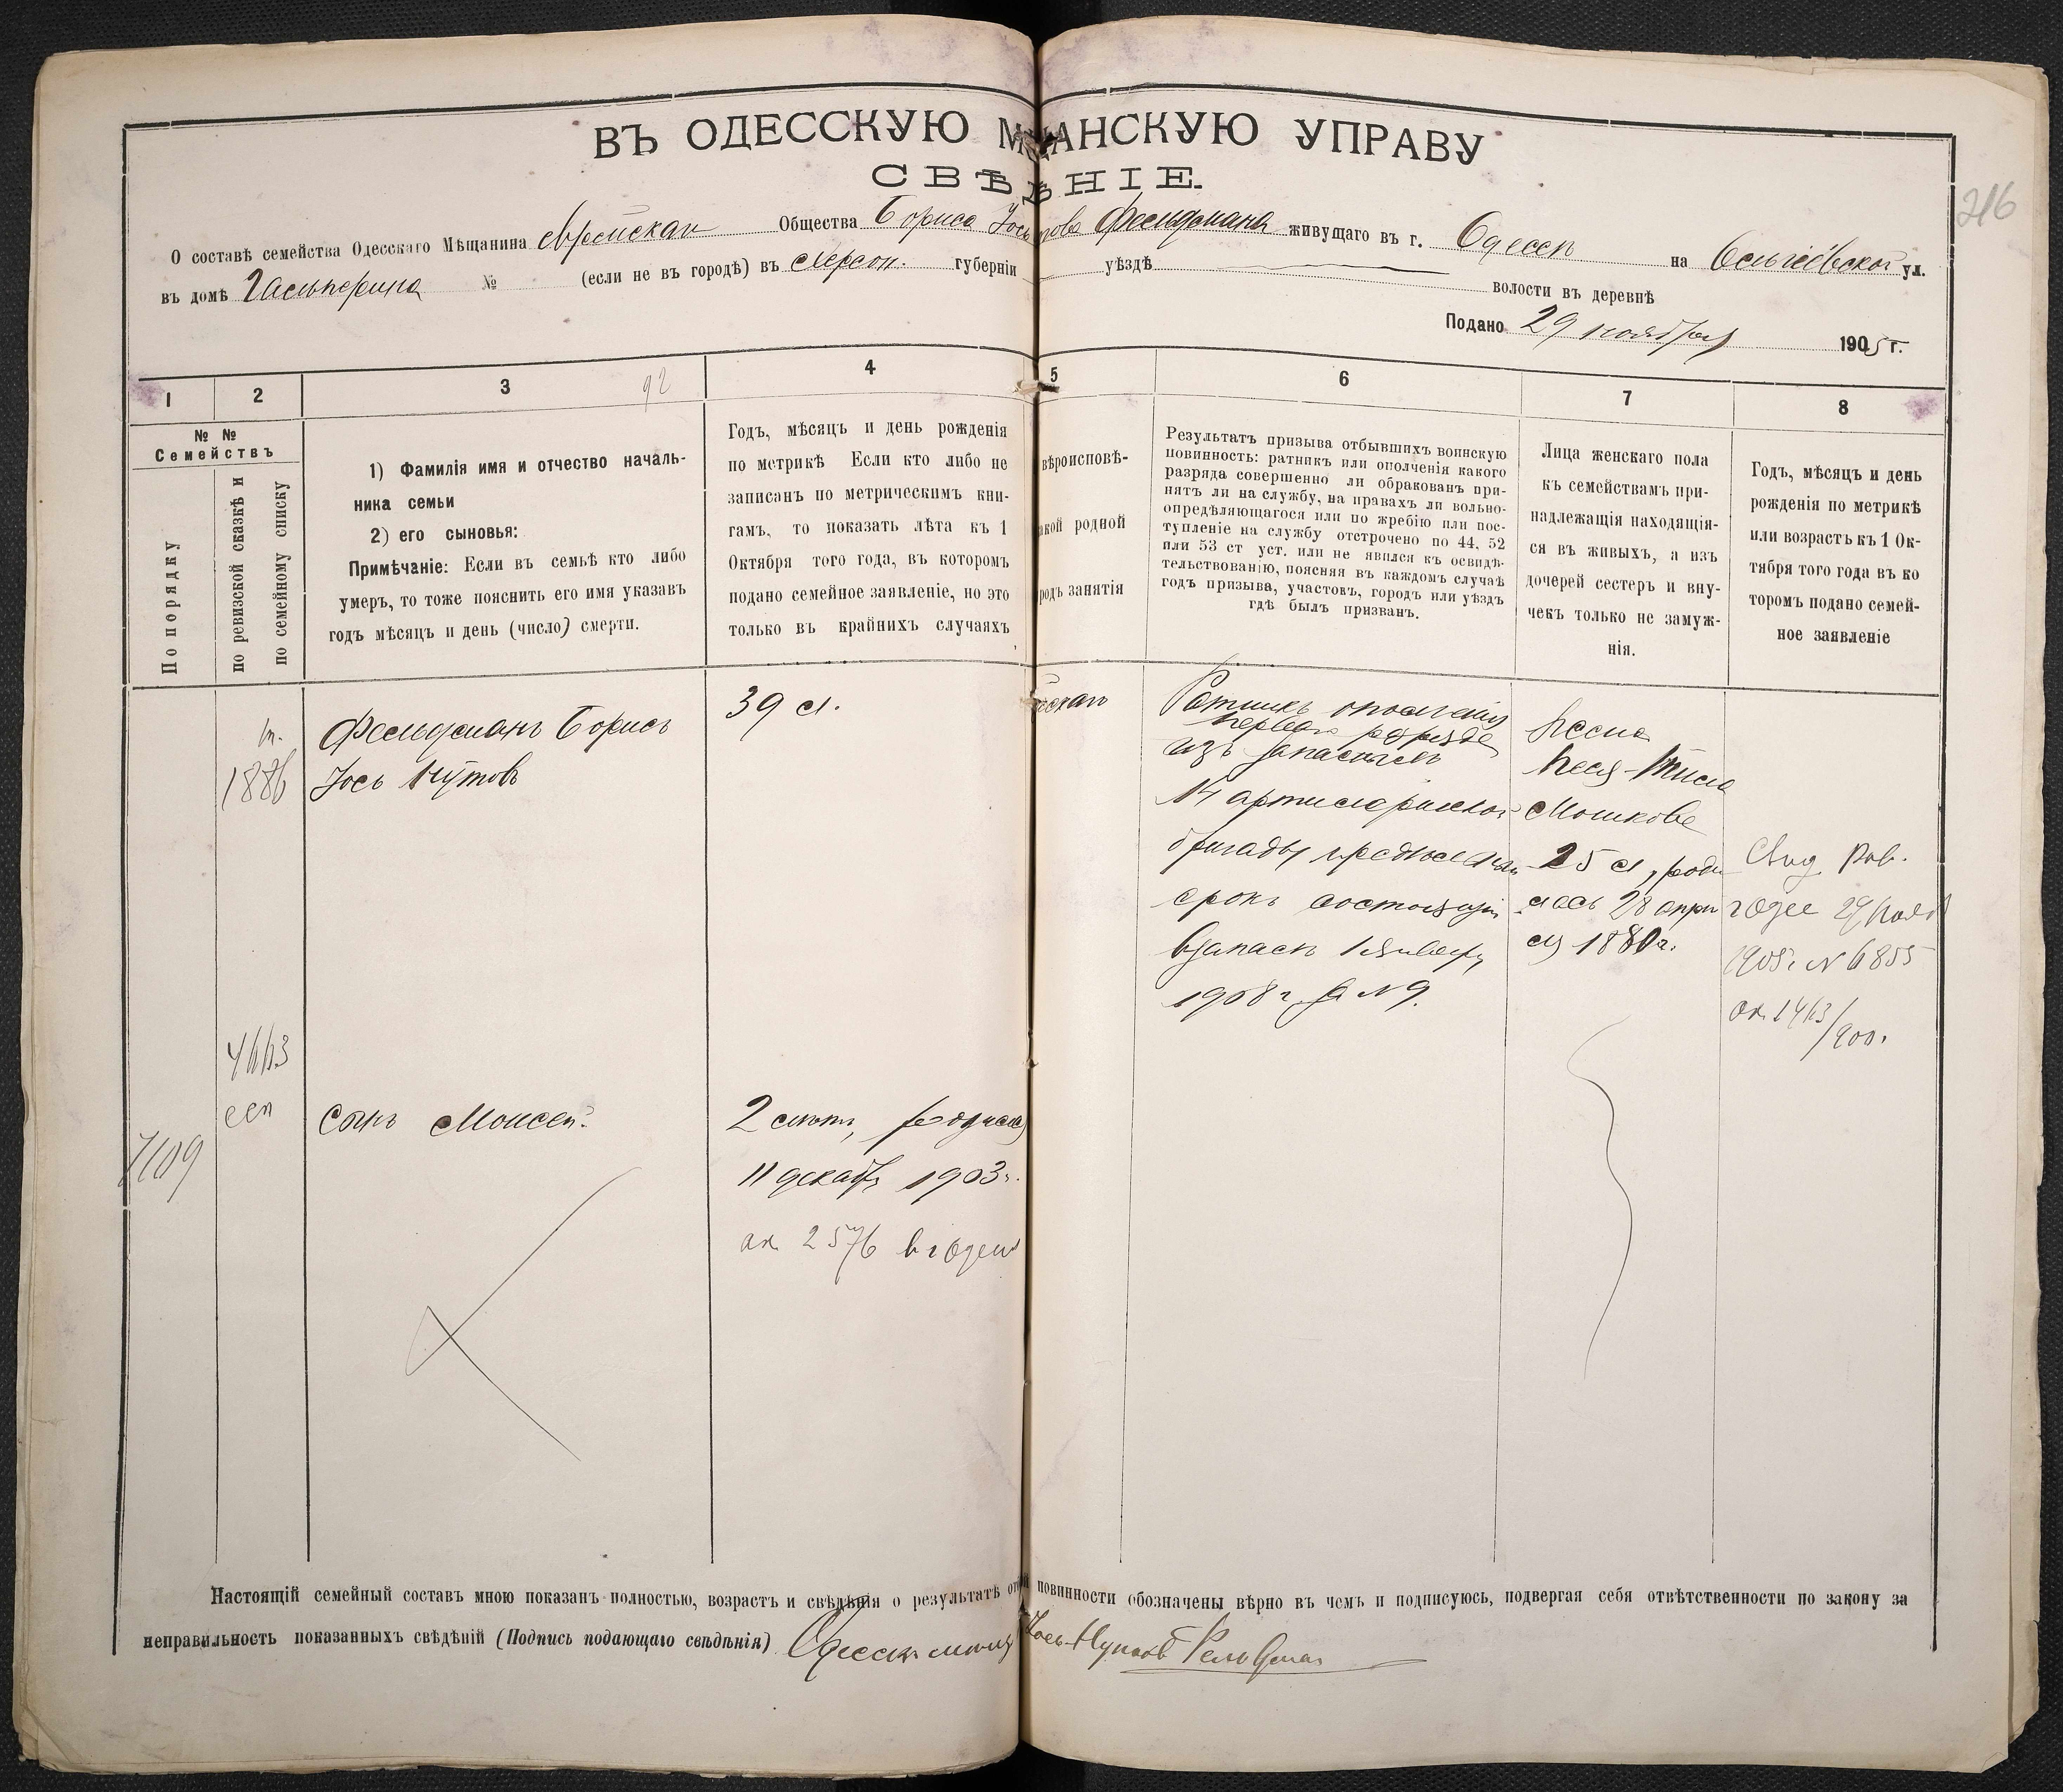 ВЪ ОДЕССКУЮ М АНСКУЮ УПРАВУ
СВѢ НІЕ.
216
О составѣ семейства Одесскаго Мѣщанина еврейская Общества Бориса Фельдмана живущаго въ г. Одессѣ на ул.
въ домѣ Гальперина № (если не въ городѣ) въ Херсон. губерніи уѣздѣ
волости въ деревнѣ
Подано 29 ноября 1905 г.
1 2 3 92 4 5 6 7 8
№ №
Семействъ
По порядку
по ревизской сказкѣ и
по семейному списку
1) Фамилія имя и отчество началь-
ника семьи
2) его сыновья:
Примѣчаніе: Если въ семьѣ кто либо
умеръ, то тоже пояснить его имя указавъ
годъ мѣсяцъ и день (число) смерти.
Годъ, мѣсяцъ и день рожденія
по метрикѣ Если кто либо не
записанъ по метрическимъ кни-
гамъ, то показать лѣта къ 1
Октября того года, въ которомъ
подано семейное заявленіе, но это
только въ крайнихъ случаяхъ
вѣроисповѣ-
акой родной
родъ занятія
Результатъ призыва отбывшихъ воинскую
повинность: ратникъ или ополченія какого
разряда совершенно ли обракованъ при-
нятъ ли на службу, на правахъ ли вольно-
опредѣляющагося или по жребію или пос-
тупленіе на службу отстрочено по 44, 52
или 53 ст уст. или не явился къ освидѣ-
тельствованію, поясняя въ каждомъ случаѣ
годъ призыва, участокъ, городъ или уѣздъ
гдѣ былъ призванъ.
Лица женскаго пола
къ семействамъ при-
надлежащія находящія-
ся въ живыхъ, а изъ
дочерей сестеръ и вну-
чекъ только не замуж-
нія.
Годъ, мѣсяцъ и день
рожденія по метрикѣ
или возрастъ къ 1 Ок-
тября того года въ ко
торомъ подано семей-
ное заявленіе
1886
Фельдманъ Борисъ
Іось Нутовъ
39 л.
Ратникъ ополченія
перваго разряда
изъ запасныхъ
14 артиллерійской
бригады
срокъ состоящій
въ запасѣ 1 января
1908 г. № 9.
Песя
Мошкова
25 л, роди
лась 28 апрѣ
ля 1880 г.
Свид. Рав.
г Одес 29 Нояб
1905 г. № 6855
ак. 1463/900.
4663
7109
Сынъ Моисей
2 лѣтъ, родился
11 декабр 1903 г.
ак. 2576 в г Одессѣ
Настоящій семейный составъ мною показанъ полностью, возрастъ и свѣдѣнія о результатѣ от повинности обозначены вѣрно въ чемъ и подписуюсь, подвергая себя отвѣтственности по закону за
неправильность показанныхъ свѣдѣній (Подпись подающаго свѣдѣнія) Одесск. мѣщ Іось-Нутовъ Фельдман